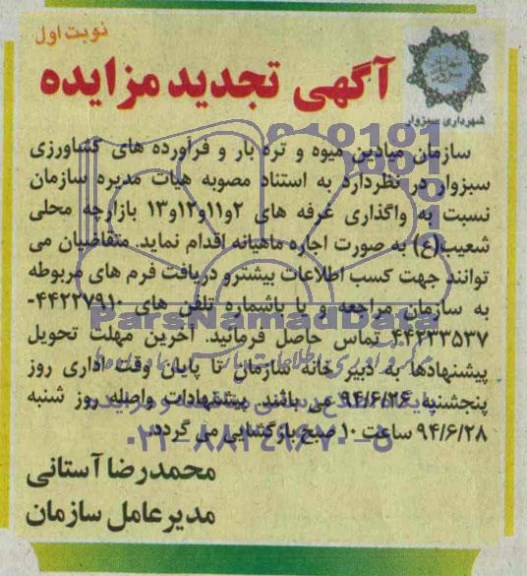 نوبت اول
آگهی تجدید مزایده
شهرداری سبزوار
سازمان میادین میوه و تره بار و فرآورده های کشاورزی
سبزوار در نظردارد به استناد مصوبه هیات مدیره سازمان
نسبت به واگذاری غرفه های ۲و۱۱و۱۲و۱۳ بازارچه محلی
شعیب(ع) به صورت اجاره ماهیانه اقدام نماید. متقاضیان می
توانند جهت کسب اطلاعات بیشترو دریافت فرم های مربوطه
به سازمان مراجعه و یا باشماره تلفن های ۴۴۲۲۷۹۱۰-
۴۴۲۳۳۵۳۷ تماس حاصل فرمائید. آخرین مهلت تحویل
پیشنهادها به دبیر خانه سازمان تا پایان وقت اداری روز
پنجشنبه ۹۴/۶/۲۶ می باشند. پیشنهادات واصله روز شنبه
۹۴/۶/۲۸ ساعت ۱۰ صبح بازگشایی می گردد.
محمدرضا آستانی
مدیرعامل سازمان
ParsNamadData